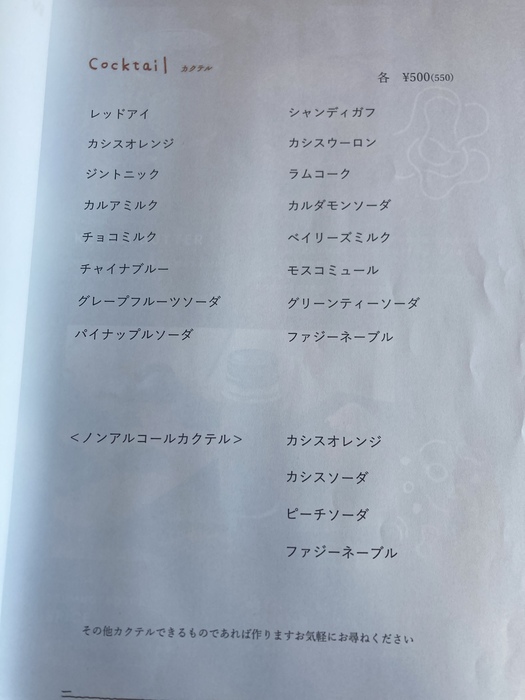 Cocktail カクテル
各 ¥500(550)
レッドアイ
カシスオレンジ
ジントニック
カルアミルク
チョコミルク
チャイナブルー
グレープフルーツソーダ
パイナップルソーダ
シャンディガフ
カシスウーロン
ラムコーク
カルダモンソーダ
ベイリーズミルク
モスコミュール
グリーンティーソーダ
ファジーネーブル
＜ノンアルコールカクテル＞
カシスオレンジ
カシスソーダ
ピーチソーダ
ファジーネーブル
その他カクテルできるものであれば作りますお気軽にお尋ねください